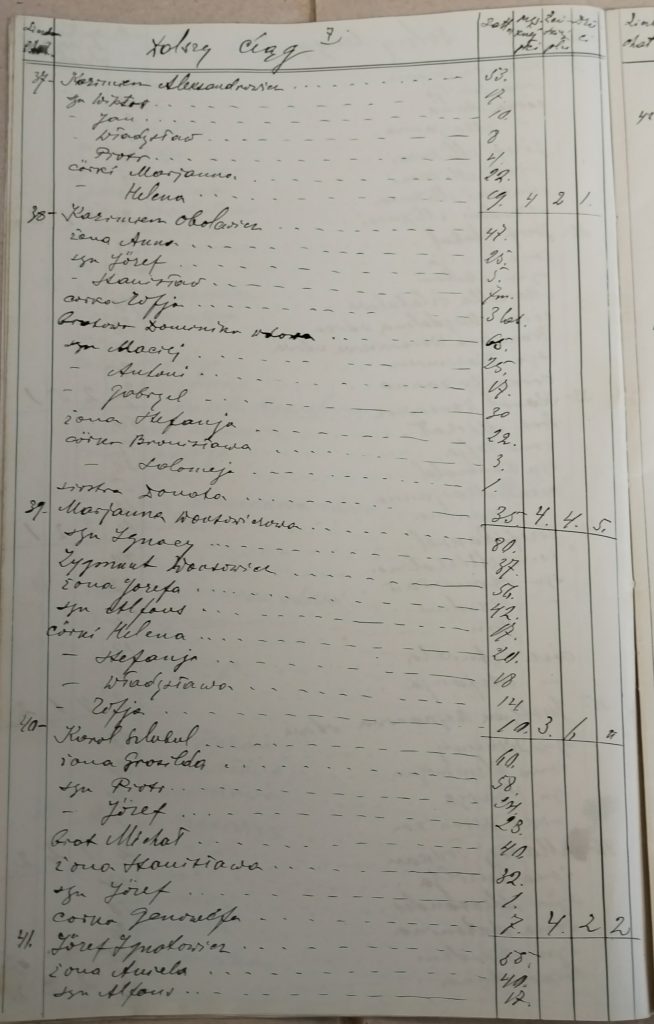 Dalszy ciąg 7.
37- Kazimierz Aleksandrowicz 53.
syn Wiktor 17
- Jan 10
- Władysław 8
- Piotr 4.
córki Marjanna 22.
- Helena 19. 4 2 1.
38- Kazimierz Obolewicz 47.
żona Anna 25.
syn Józef 5.
- Stanisław 7m.
córka Zofja 3 lat.
bratowa Dominika wdowa 65.
syn Maciej 25.
- Antoni 17.
- Gabryel 30
żona Stefanja 22.
córka Bronisława 3.
- Salomeja 1.
siostra Donata 35 4. 4. 5.
39. Marjanna 80.
syn Ignacy 37.
Zygmunt 56.
żona Józefa 42.
syn Alfons 17.
córki Helena 20.
- Stefanja 18
- Władysława 14
- Zofja 10. 3.
40- Karol 60.
żona 58.
syn Piotr 24.
- Józef 28.
brat Michał 40
żona Stanisława 32.
syn Józef 1.
córka Genowefa 7. 4. 2 2
41. Józef Ignatowicz 55.
żona Aniela 40.
syn Alfons 17.